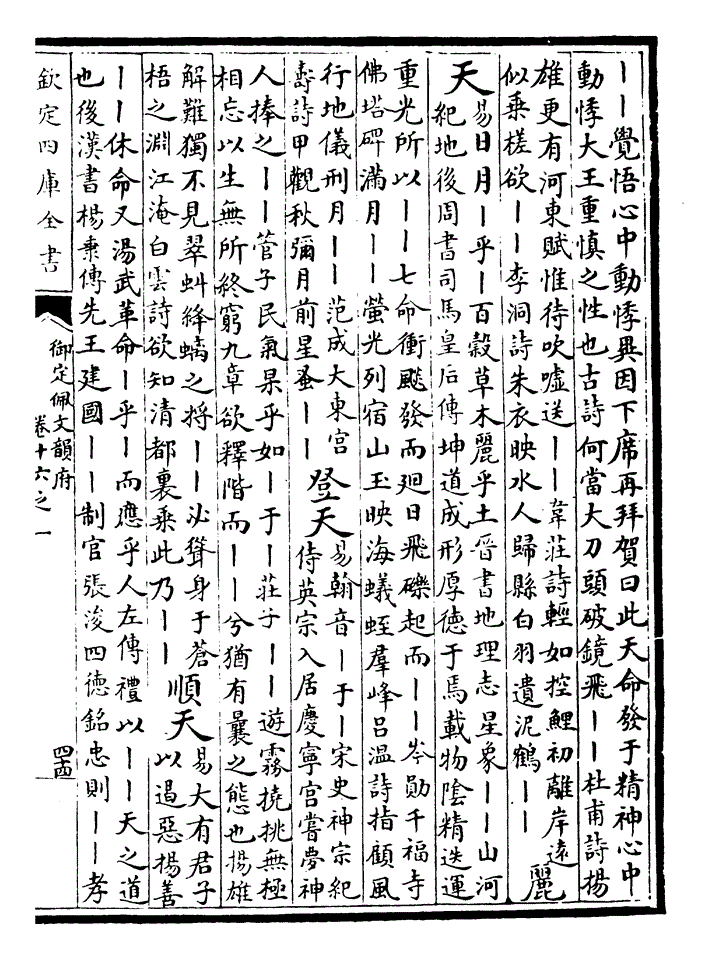 ——覺悟心中動悸異因下席再拜賀曰此天命發于精神心中
動悸大王重慎之性也古詩何當大刀頭破鏡飛——杜甫詩揚
雄更有河東賦惟待吹噓送——韋莊詩輕如控鯉初離岸遠
似乘槎欲——李洞詩朱衣映水人歸縣白羽遺泥鶴——
麗
天
易日月—乎—百穀草木麗乎土晉書地理志星象——山河
紀地後周書司馬皇后傳坤道成形厚德于焉載物陰精迭運
重光所以——七命衝飈發而廻日飛礫起而——岑勛千福寺
佛塔碑滿月——螢光列宿山玉映海蟻蛭羣峰呂溫詩指顧風
行地儀刑月——范成大東宮
壽詩甲觀秋彌月前星蚤——
登天
易翰音—于—宋史神宗紀
侍英宗入居慶寧宮嘗夢神
人捧之——管子民氣杲乎如—于—莊子——遊霧撓挑無極
相忘以生無所終窮九章欲釋階而——兮猶有曩之態也揚雄
解難獨不見翠虯絳螭之將——必聳身于蒼
梧之淵江淹白雲詩欲知清都裏乘此乃——
順天
易大有君子
以遏惡揚善
——休命又湯武革命—乎—而應乎人左傳禮以——天之道
也後漢書楊秉傳先王建國——制官張浚四德銘忠則——孝
欽定四庫全書
御定佩文韻府
卷十六之一
四十四